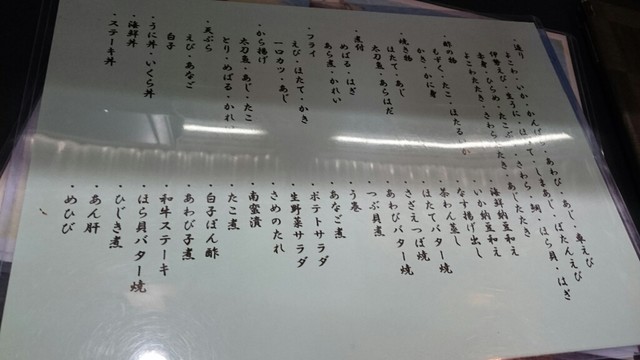 ・造り
よこわ・いか・かんぱち・あわび・あじ・車えび
伊勢えび・生うに・ほたて・しまあじ・ぼたんえび
赤身・ひらめ・たこぶつ・さわら・鯛・ほら貝・はぎ
よこわたたき・さわらたたき・あじたたき
・酢の物
もずく・たこ・ほたるいか
かき・かに身
・焼き物
ほたて・あじ
太刀魚・あらはだ
・煮付
めばる・はぎ
あら煮・かれい
・フライ
えび・ほたて・かき
一口カツ・あじ
・から揚げ
太刀魚・あじ・たこ
とり・めばる・かれい
・天ぷら
えび・あなご
白子
・うに丼・いくら丼
・海鮮丼
・ステーキ丼
・海鮮納豆和え
・いか納豆和え
・なす揚げ出し
・茶わん蒸し
・ほたてバター焼
・きざえつぼ焼
・あわびバター焼
・つぶ貝煮
・う巻
・あなご煮
・ポテトサラダ
・生野菜サラダ
・さめのたれ
・南蛮漬
・たこ煮
・白子ぽん酢
・あわび子煮
・和牛のステーキ
・ほら貝バター焼
・ひじき煮
・あん肝
・めひび